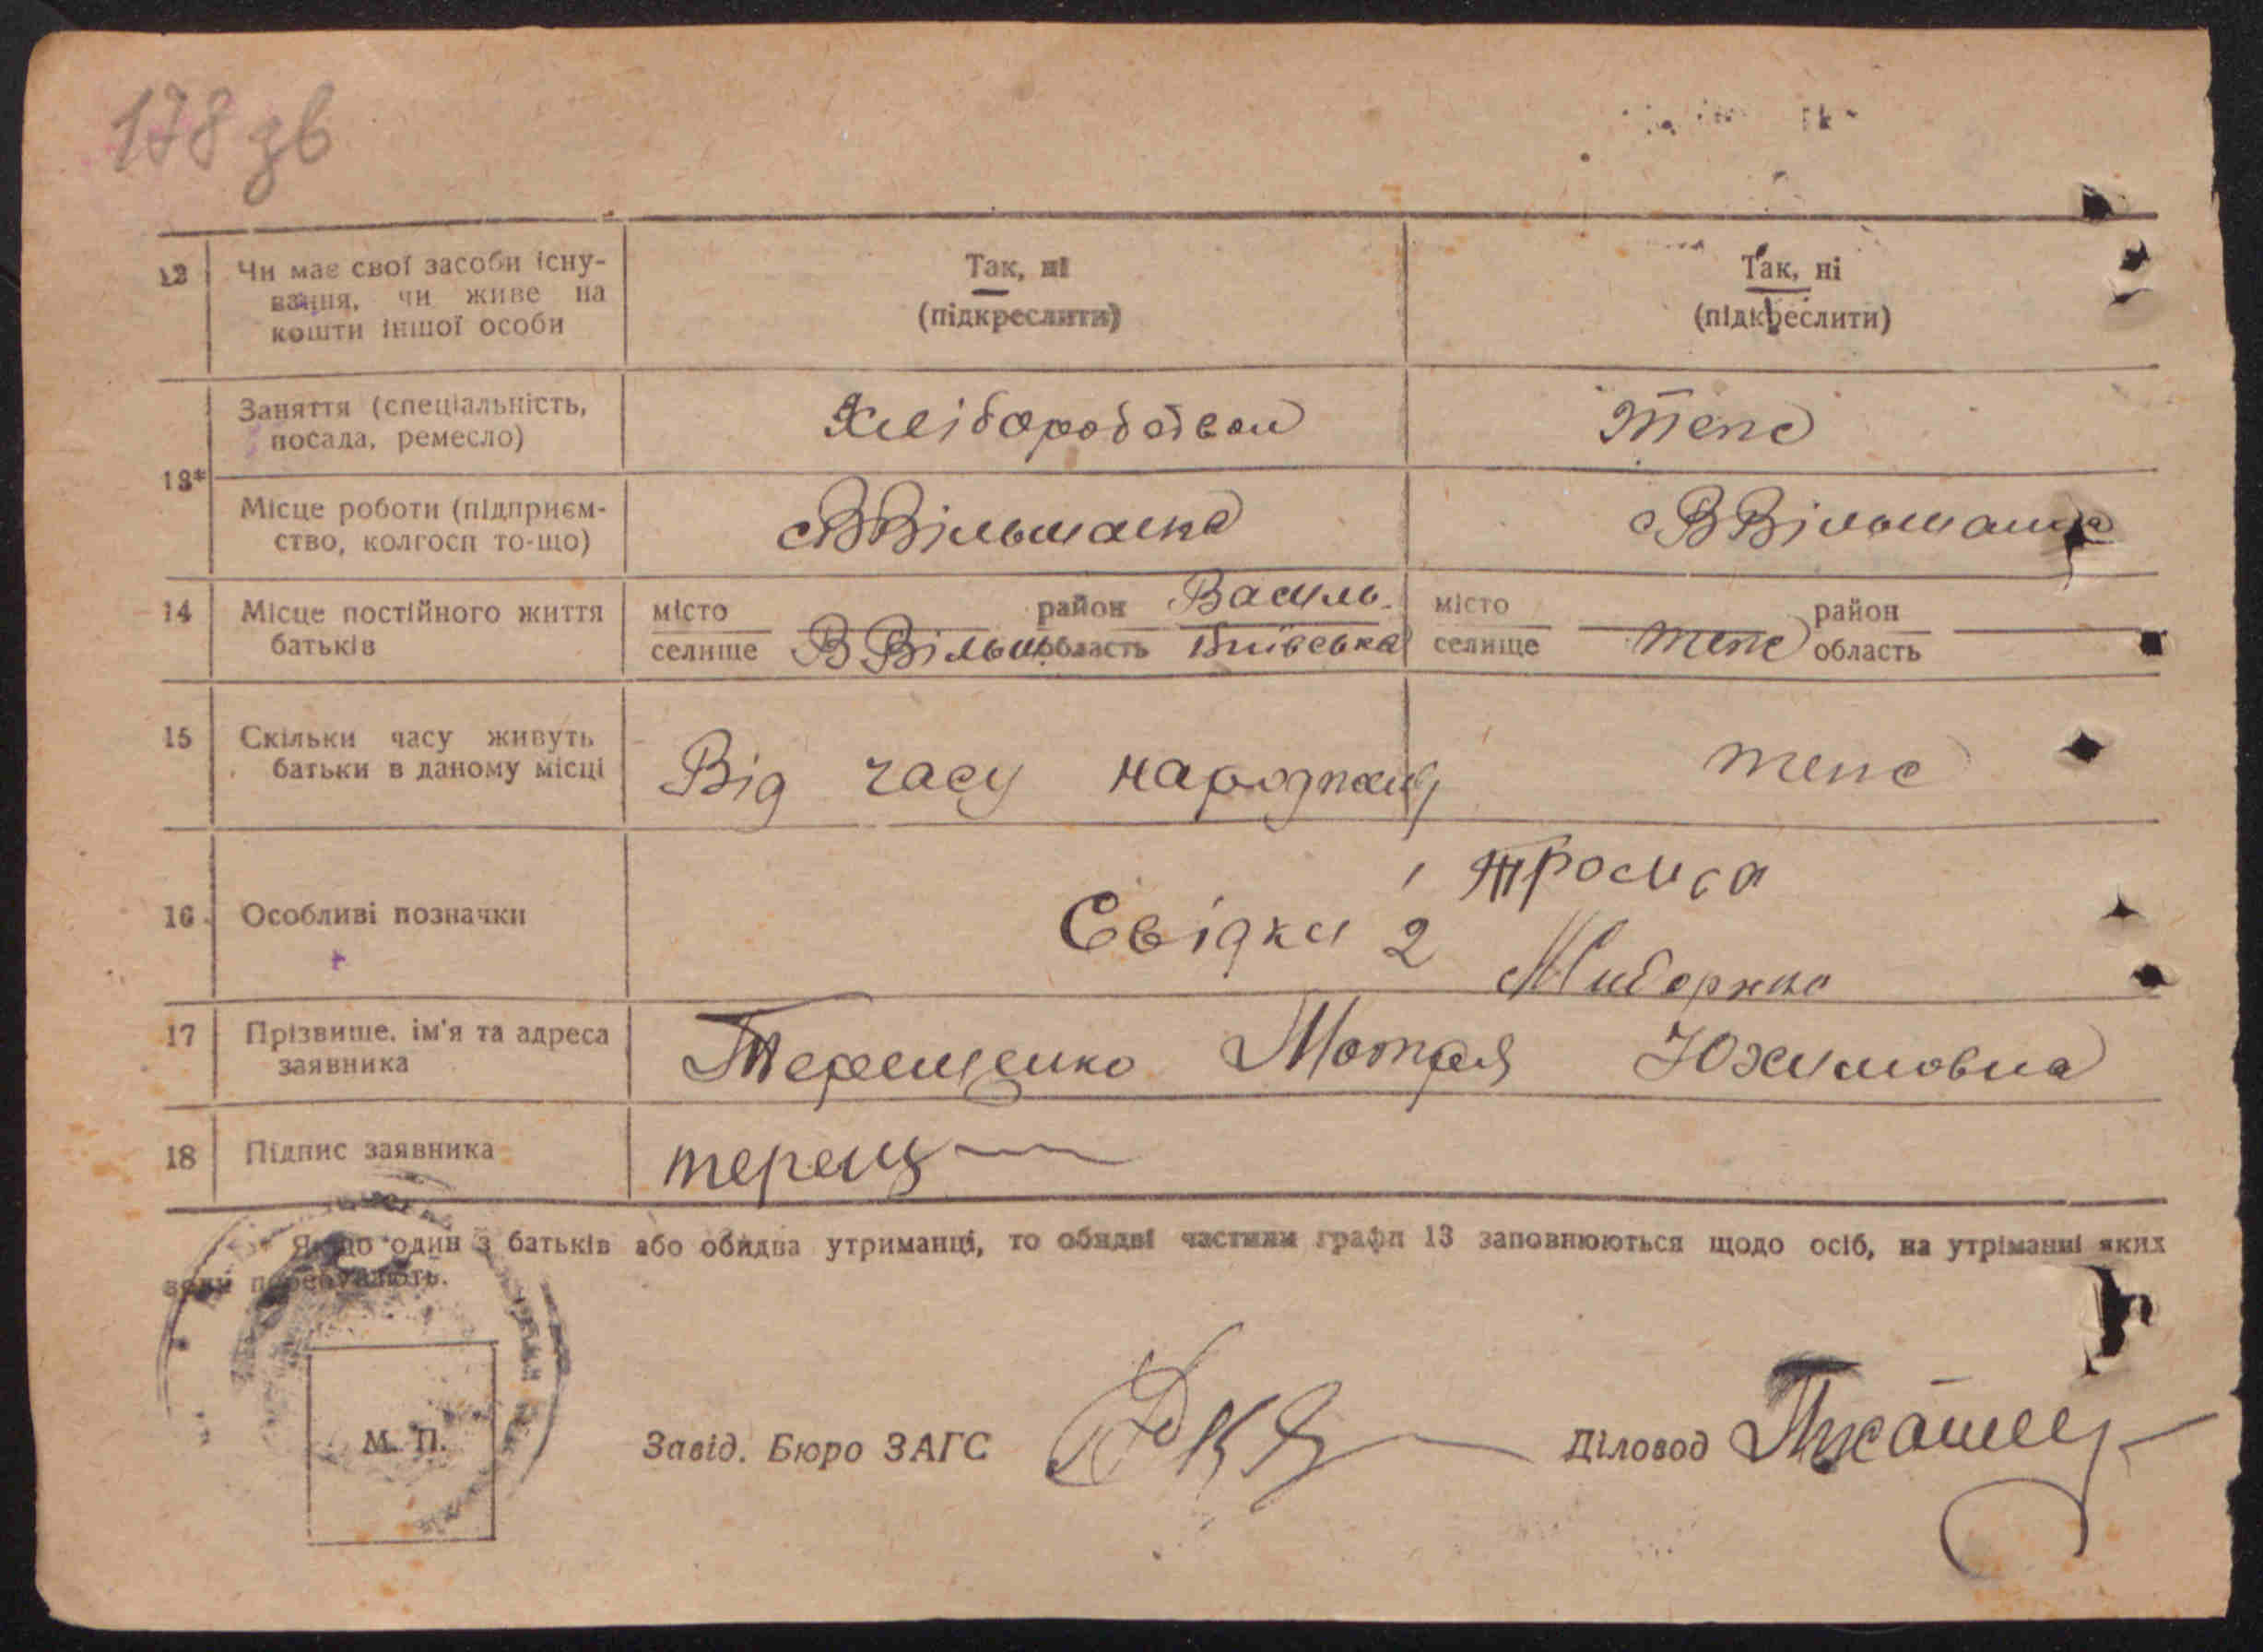 178 зв
12 Чи має свої засоби існу-
вання, чи живе на
кошти іншої особи
Так, ні
(підкреслити)
Так, ні
(підкреслити)
13*
Заняття (спеціальність,
посада, ремесло)
Хліборобством
Теж
Місце роботи (підприєм-
ство, колгосп то-що)
В Вільшанка
В Вільшанка
14 Місце постійного життя
батьків
місто
селище В Вільш.
район Василь.
область Київська
місто
селище теж
район
область
15 Скільки часу живуть
батьки в даному місці
Від часу народження
теж
16 Особливі позначки
Свідки 1
2
17 Прізвише, ім'я та адреса
заявника
Терещенко Мотря Юхимовна
18 Підпис заявника
терещ
Якщо один з батьків або обидва утриманці, то обидві частини графи 13 заповнюються щодо осіб, на утріманні яких
вони перебувають.
М. П.
Завід. Бюро ЗАГС
Діловод